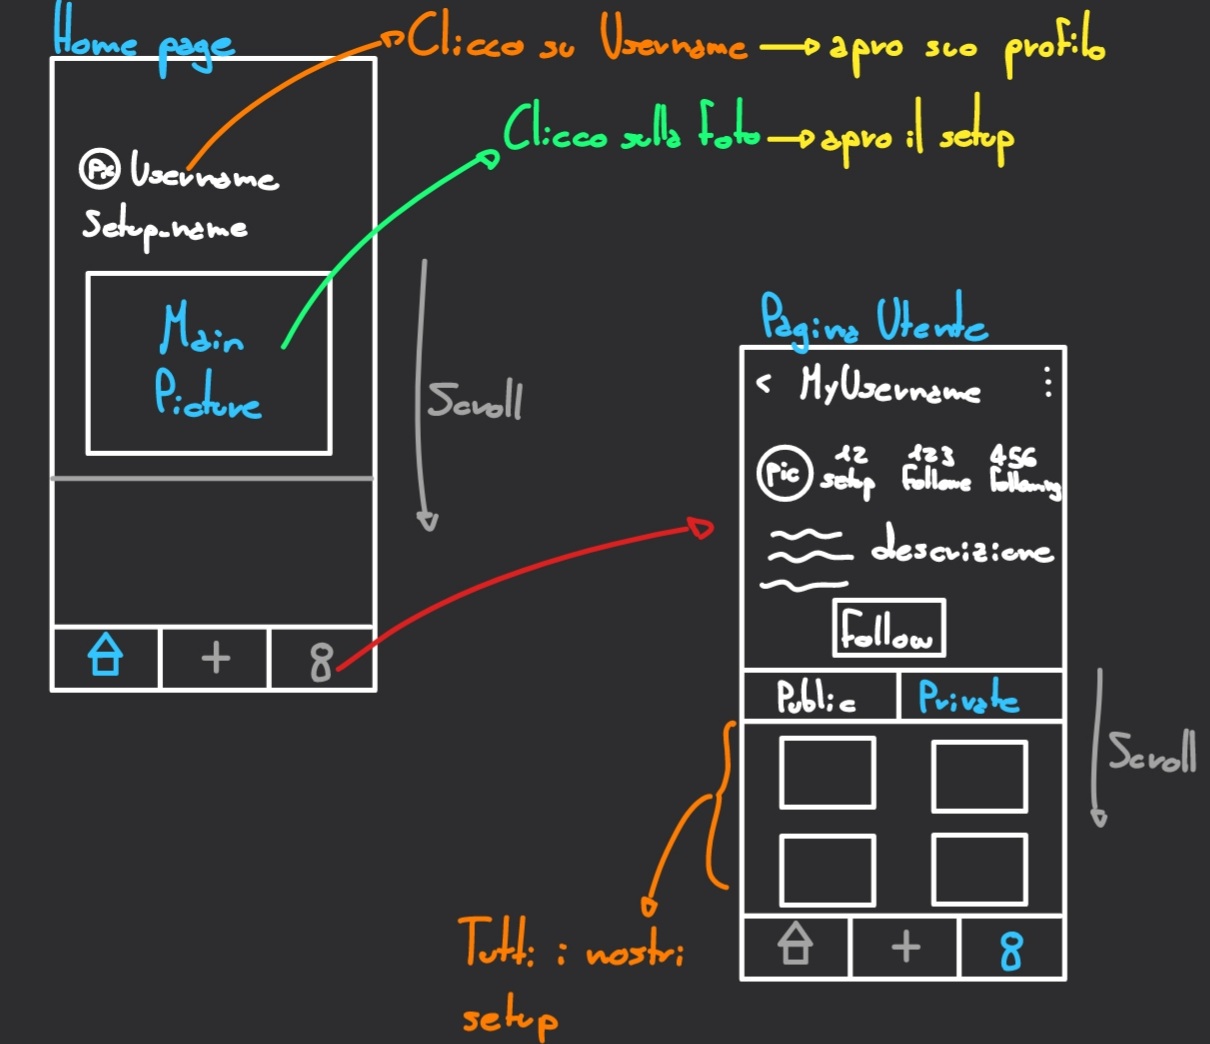 Home page
Clicco su Username → apro suo profilo
Clicco sulla foto → apro il setup
Pic Username
Setup_name
Main
Picture
Scroll
Pagina Utente
< MyUsername
Pic
12 123 456
setup follower following
descrizione
Follow
Public Private
Scroll
Tutti i nostri
setup